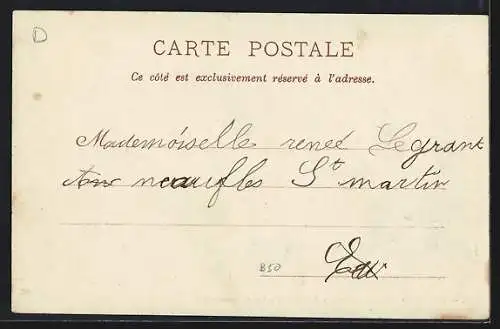 D
CARTE POSTALE
Ce côté est exclusivement réservé à l'adresse.
Mademoiselle reneé Legrant
Aux neaufles St martin
B50